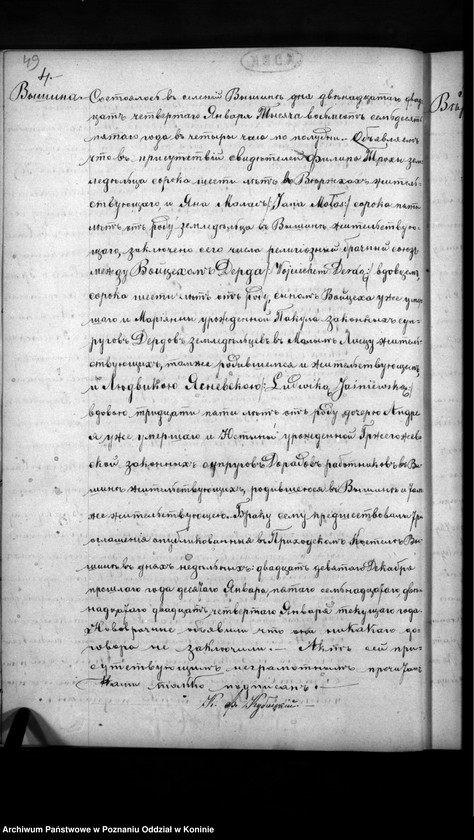 49
4.
Вышина. Состоялось в селении Вышине дня двѣнадцатаго двад
цать четвертаго Января Тысяча восьмсотъ семьдесятъ
пятаго года въ четыре часа по полудни. Объявляемъ
что въ присутствіи свидѣтелей Филипа Трохи зем
ледѣльца сорока шести лѣтъ в жител
ствующаго и Яна / Jana / сорока пяти
лѣтъ отъ роду земледѣльца въ Вышинѣ жительствую
щаго, заключено сего числа религіозный брачный союзъ
между Войцехомъ Дерда / Wojciechem Derdą / вдовцемъ
сорока шести лѣтъ отъ роду, сыномъ Войцеха уже умер
шаго и Маріянны урожденной Пакула законныхъ суп
руговъ Дердовъ земледѣльцевъ въ Маломъ жител
ствующихъ, тамже родившемся и жительствующемъ
и Людвикою Ясневскою / Ludwiką Jaśniewską /
вдовою тридцати пяти лѣтъ отъ роду дочерью Андре
я уже умершаго и урожденной
ской законныхъ супруговъ работниковъ въ Вы
шинѣ жительствующихъ, родившеюся въ Вышинѣ и там
же жительствующею. Браку сему предшествовали три
оглашенія опубликованныя въ Приходскомъ Костелѣ Вы
шинѣ въ дняхъ недѣльныхъ: двадцать девятаго Декабря
прошлаго года десятаго Января, пятаго семьнадцатаго двѣ
надцатаго двадцать четвертаго Января текущаго года.
Новобрачные объявили что они никакаго до
говора не заключили. — Актъ сей при
сутствующимъ неграмотнымъ прочитанъ
Нами только подписанъ. —
К. Кс.
Archiwum Państwowe w Poznaniu Oddział w Koninie